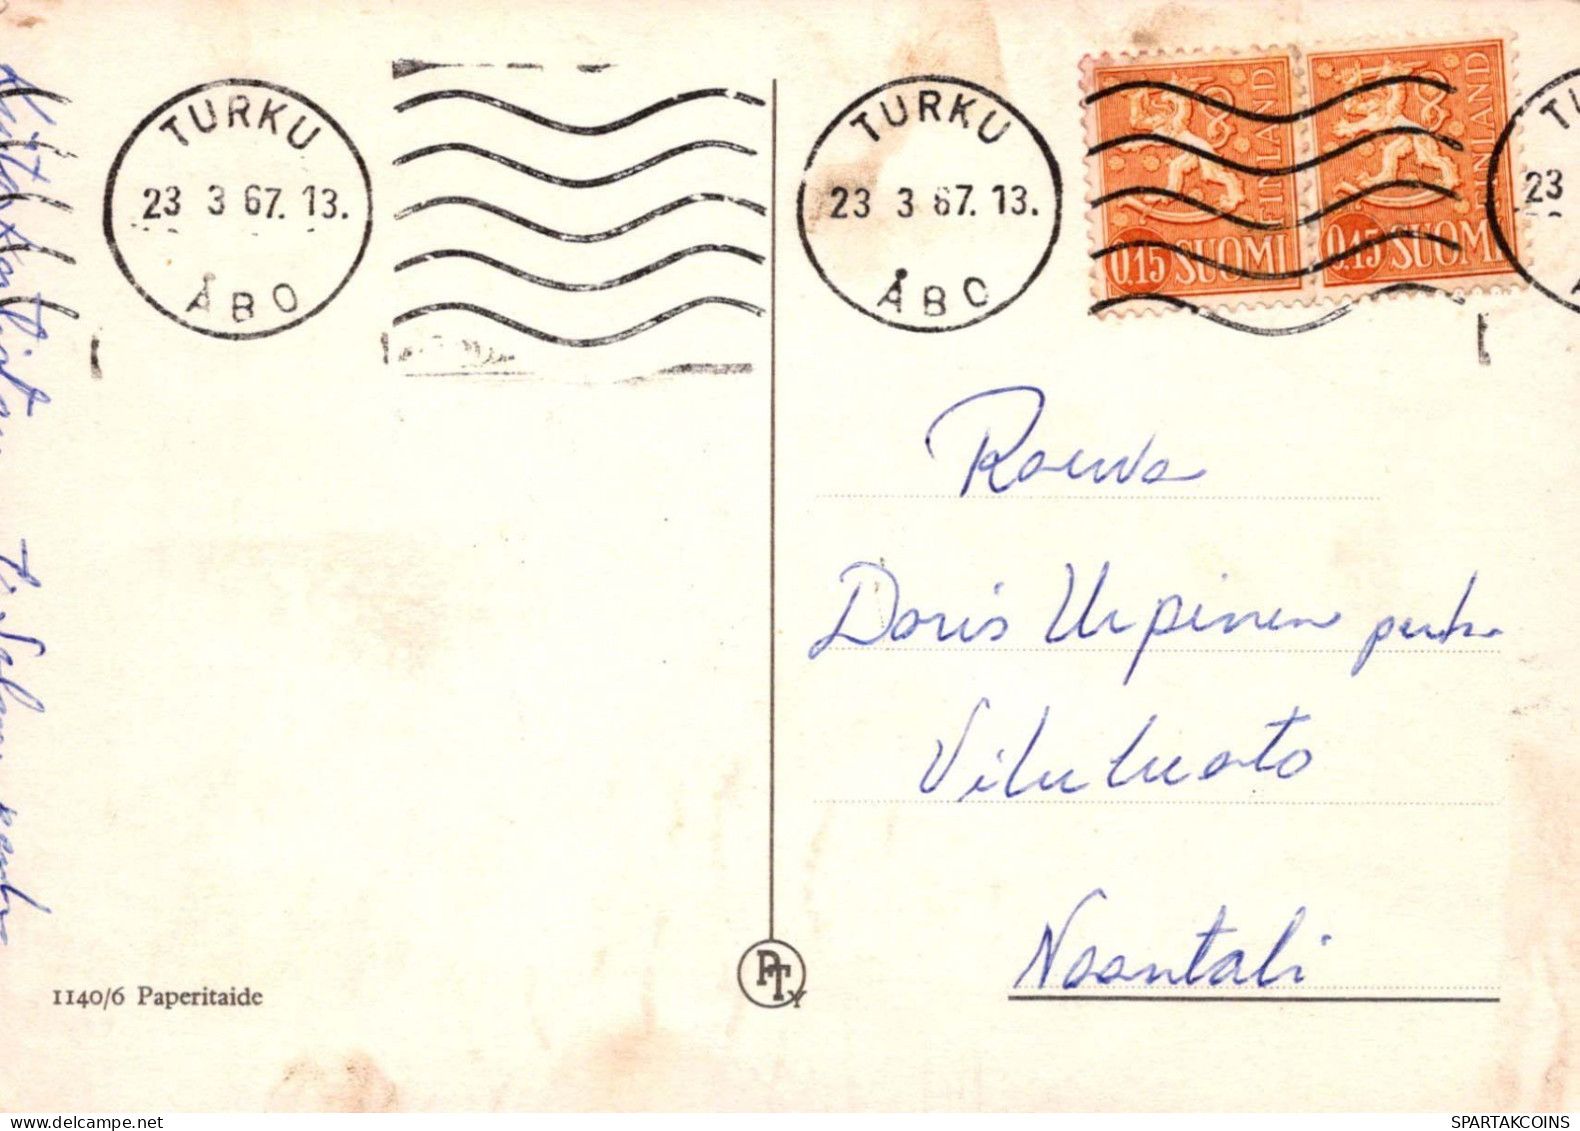 TURKU
23 3 67. 13.
ÅBO
TURKU
23 3 67. 13.
ÅBO
FINLAND
0.15 SUOMI
FINLAND
0.15 SUOMI
TU
23
Å
Rouva
Doris Urpinen perh.
Viluluoto
Naantali
1140/6 Paperitaide
PTY
delcampe.net
SPARTAKCOINS